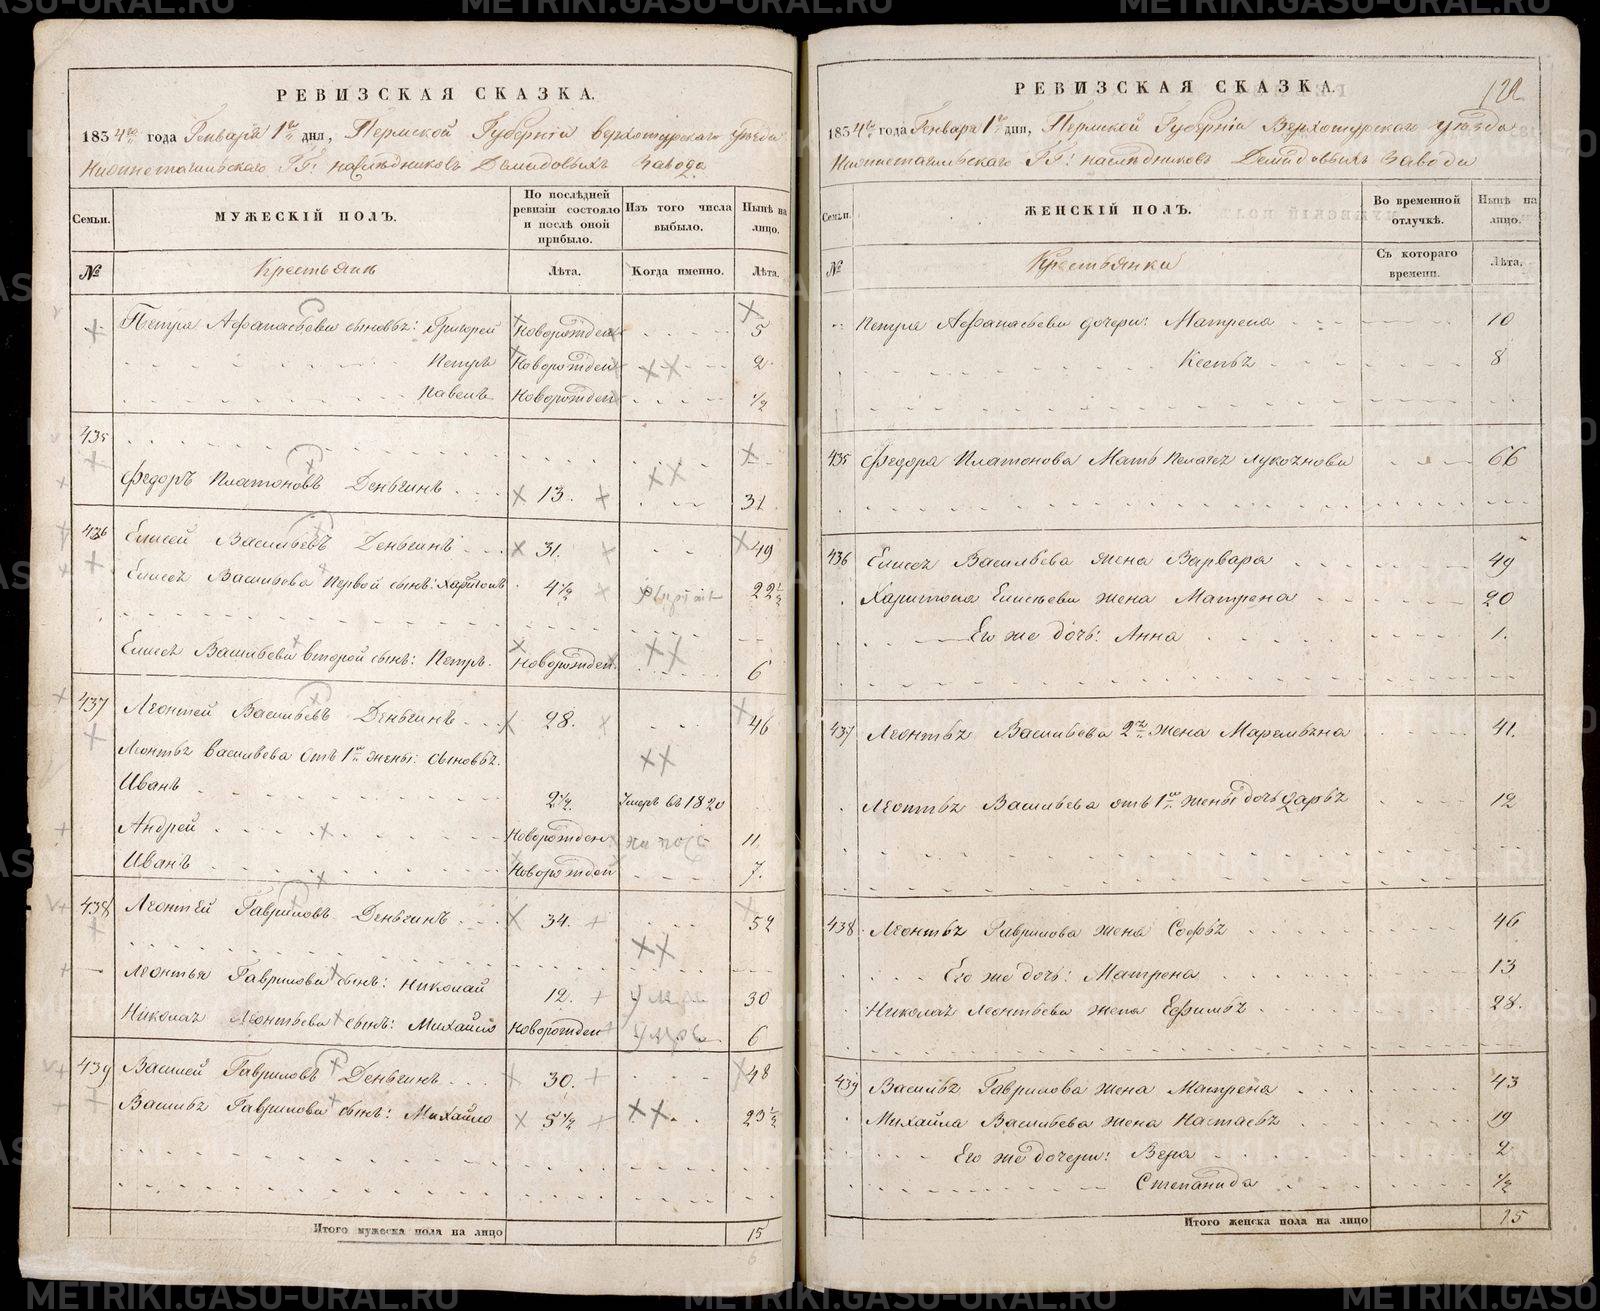 РЕВИЗСКАЯ СКАЗКА.
1834го года Генваря 1го дня, Пермской Губернiи Верхотурскаго уѣзда
Нижнетагильскаго ГГ: наслѣдниковъ Демидовыхъ Завода
Семьи. МУЖЕСКІЙ ПОЛЪ. По послѣдней ревизіи состояло и послѣ оной прибыло. Изъ того числа выбыло. Нынѣ на лицо.
№ Крестьянъ Лѣта. Когда именно. Лѣта.
Петра Афанасьева сыновья: Григорей Новорожден 5
Петръ Новорожден 2
Павелъ Новорожден 1/2
435
Федоръ Платоновъ Деньгинъ 13. 31
436 Елисей Васильевъ Деньгинъ 31. 49
Елисея Васильева первой сынъ: Харитонъ 4 1/2 22 1/2
Елисея Васильева второй сынъ: Петръ. Новорожден. 6
437 Леонтей Васильевъ Деньгинъ 28. 46
Леонтья Васильева отъ 1й жены: сыновья.
Иванъ 2 1/2. Умеръ въ 1820
Андрей Новорожден 11.
Иванъ Новорожден 7.
438 Леонтей Гавриловъ Деньгинъ 34. 52
Леонтья Гаврилова сынъ: Николай 12. 30
Николая Леонтьева сынъ: Михайло Новорожден 6
439 Василей Гавриловъ Деньгинъ 30. 48
Василья Гаврилова сынъ: Михайло 5 1/2 23 1/2
Итого мужеска пола на лицо 15
РЕВИЗСКАЯ СКАЗКА.
1834го года Генваря 1го дня, Пермской Губернiи Верхотурскаго уѣзда
Нижнетагильскаго ГГ: наслѣдниковъ Демидовыхъ Завода
Семьи. ЖЕНСКІЙ ПОЛЪ. Во временной отлучкѣ. Нынѣ на лицо.
№ Крестьянки Съ котораго времени. Лѣта.
Петра Афанасьева дочери: Матрена 10
Ксенья 8
435 Федора Платонова Мать Пелагея Лукоянова 66
436 Елисея Васильева жена Варвара 49
Харитона Елисѣева жена Матрена 20
Его же дочь: Анна 1.
437 Леонтья Васильева 2я жена Маремьяна 41.
Леонтья Васильева отъ 1й жены дочь Дарья 12
438 Леонтья Гаврилова жена Софья 46
Его же дочь: Матрена 13
Николая Леонтьева жена Ефимья 28.
439 Василья Гаврилова жена Матрена 43
Михайла Васильева жена Настасья 19
Его же дочери: Вера 2
Степанида 1/2
Итого женска пола на лицо 15
METRIKI.GASO-URAL.RU